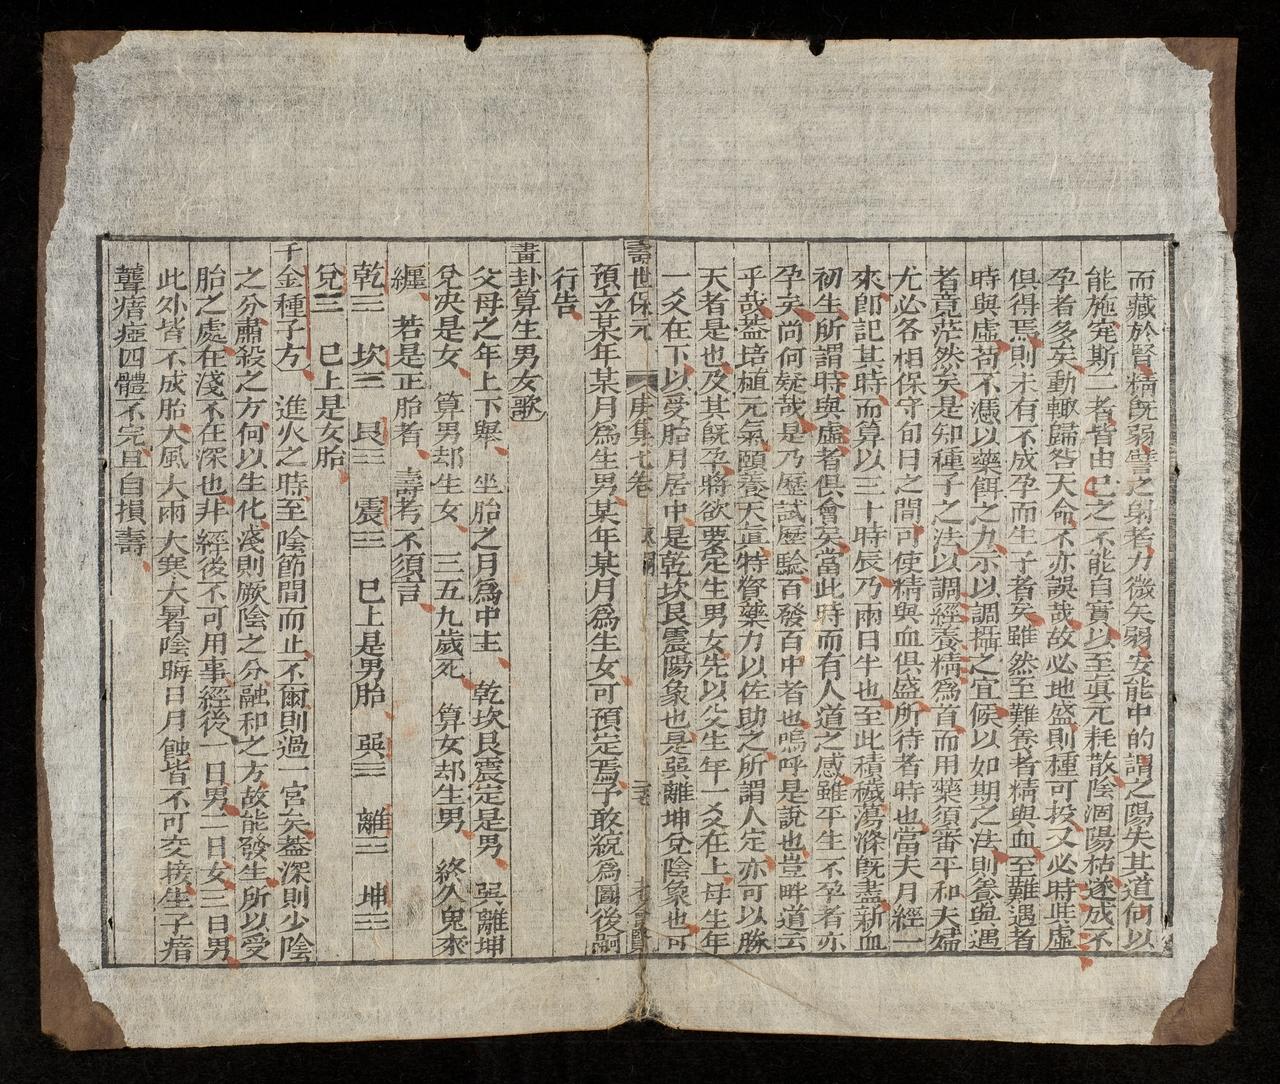 而藏於腎精旣弱譬之射者力微矢弱安能中的謂之陽失其道何以
能施寃斯二者皆由已之不能自實以至眞元耗散陰涸陽枯遂成不
孕者多矣動輙歸咎天命不亦誤哉故必地盛則種可投又必時些虛
俱得焉則未有不成孕而生子者矣雖然至難養者精與血至難遇者
時與虛苟不憑以藥餌之力示以調攝之宜候以如期之法則養與遇
者竟茫然矣是知種子之法以調經養精爲首而用藥須審平和夫婦
尤必各相保守旬日之間可使精與血俱盛所待者時也當夫月經一
來卽記其時而算以三十時辰乃兩日半也至此積穢蕩滌旣盡新血
初生所謂時與虛者俱會矣當此時而有人道之感雖平生不孕者亦
孕矣尚何疑哉是乃歷試歷驗百發百中者也嗚呼是說也豈畔道云
乎哉蓋培植元氣頤養天眞特資藥力以佐助之所謂人定亦可以勝
天者是也及其旣孕將欲要定生男女先以父生年一爻在上母生年
一爻在下以受胎月居中是乾坎艮震陽象也是巽離坤兌陰象也可
預立某年某月爲生男某年某月爲生女可預定焉予敢統爲圖後嗣
行告
壽世保元 庚集七卷
畫卦算生男女歌
父母之年上下舉 坐胎之月爲中主 乾坎艮震定是男 巽離坤
兌決是女 算男却生女 三五九歲死 算女却生男 終久鬼來
纏 若是正胎者 壽考不須言
乾☰ 坎☵ 艮☶ 震☳ 已上是男胎 巽☴ 離☲ 坤☷
兌☱ 已上是女胎
千金種子方 進火之時至陰節間而止不爾則過一宮矣蓋深則少陰
之分肅殺之方何以生化淺則厥陰之分融和之方故能發生所以受
胎之處在淺不在深也非經後不可用事經後一日男二日女三日男
此外皆不成胎大風大雨大寒大暑陰晦日月蝕皆不可交接生子瘖
聾瘖瘂四體不完且自損壽